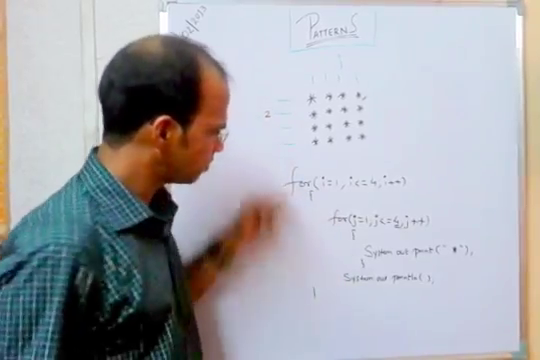 02/2013
PATTERNS
* * * *
2 * * * *
* * * *
* * * *
for(i=1, i<=4, i++)
{
for(j=1, j<=4, j++)
{
System.out.print(" * ");
}
System.out.println();
}